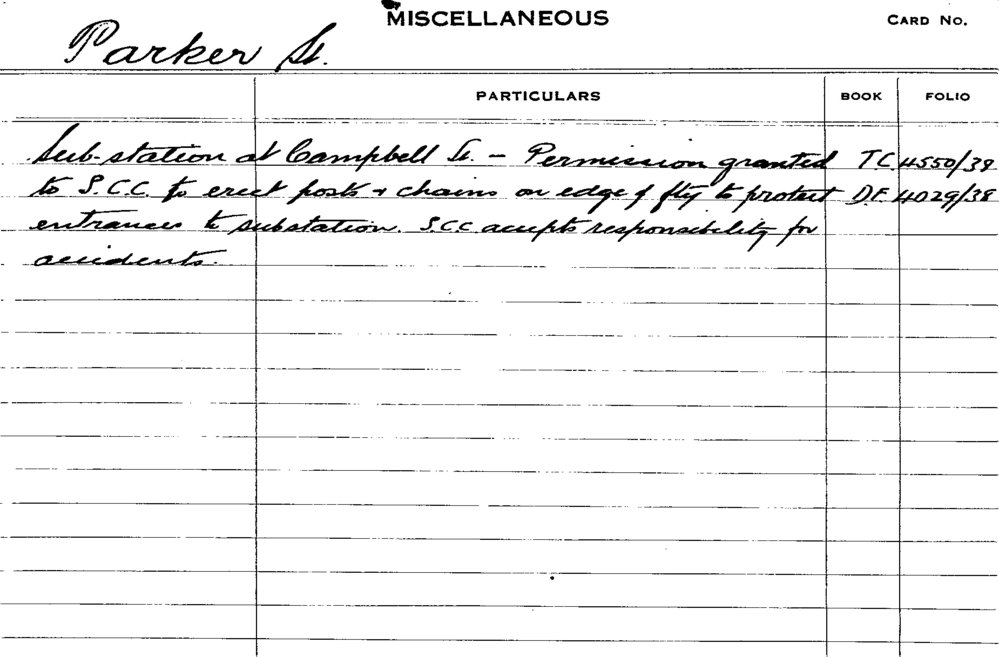 MISCELLANEOUS
CARD NO.
Parker St.
PARTICULARS BOOK FOLIO
Sub-station at Campbell St. - Permission granted T.C. 4550/38
to S.C.C. to erect posts + chains on edge of ftg to protect D.F. 4029/38
entrances to substation. S.C.C. accepts responsibility for
accidents.